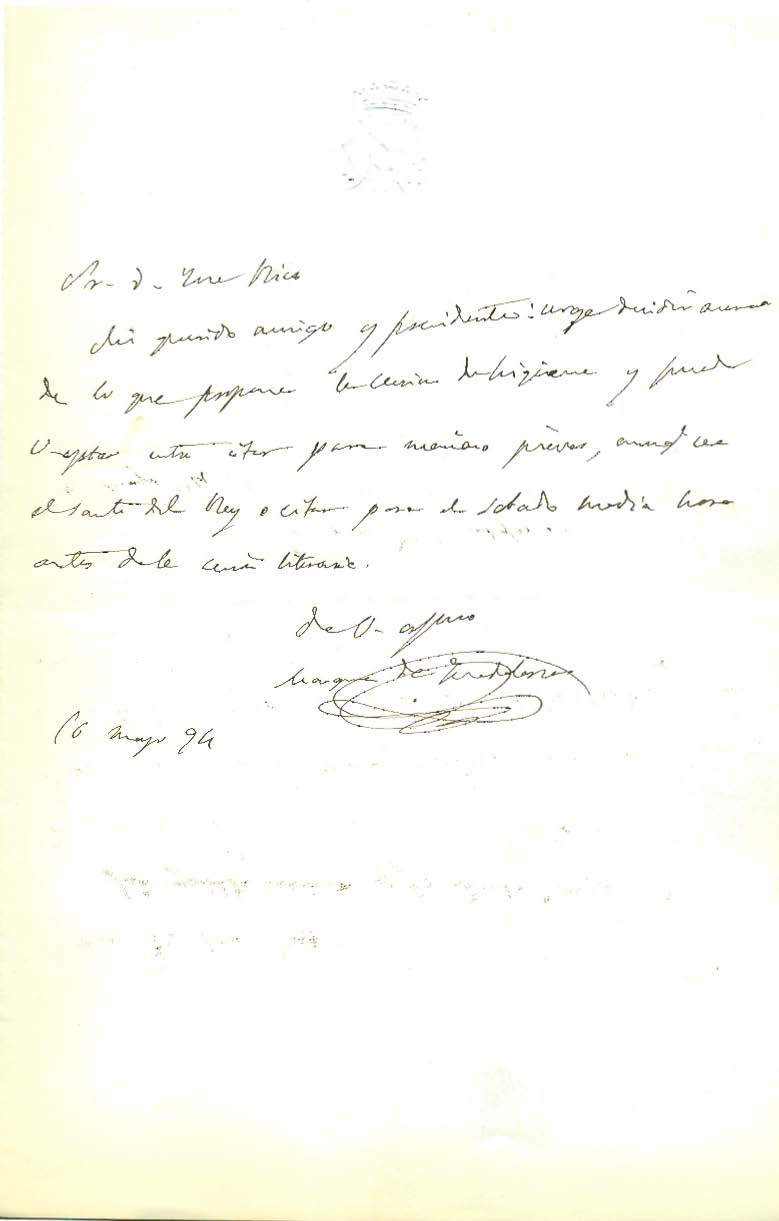 Sr. D. José Rico
Mi querido amigo y presidente: urge decidir acerca
de lo que propone la sección de higiene y puede
V. optar entre citar para mañana jueves, aunq. sea
el santo del Rey o citar para el sábado media hora
antes de la sesión literaria.
de V. affmo
Marqués de
16 mayo 94